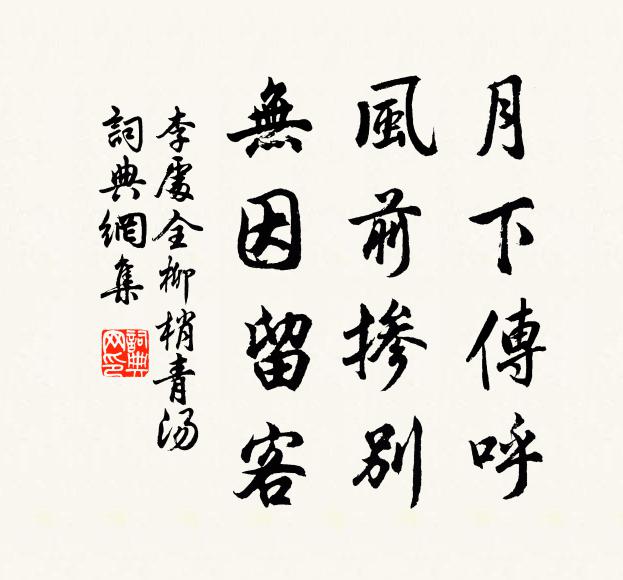 月下傳呼
風前摻別
無因留客
李處全柳梢青湯
詞典網集
詞典網印